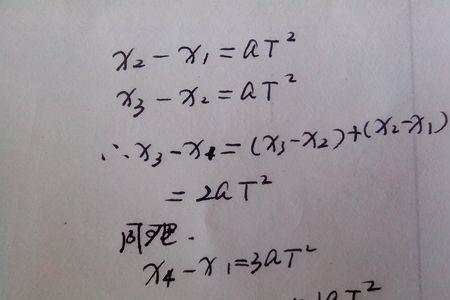 x₂ - x₁ = aT²
x₃ - x₂ = aT²
∴ x₃ - x₁ = (x₃-x₂)+(x₂-x₁)
= 2aT²
同理.
x₄ - x₁ = 3aT²
aT²